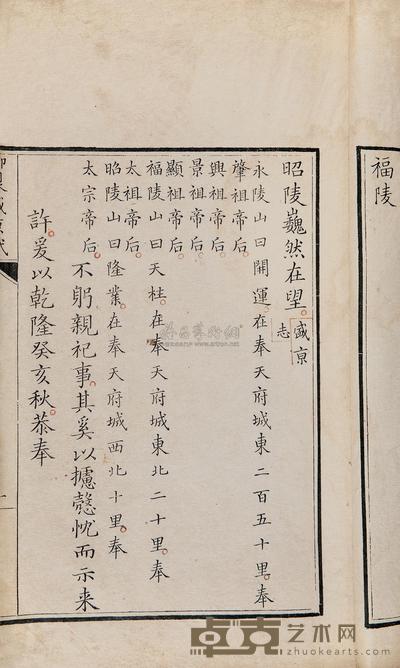 福陵
昭陵巍然在望盛京
志
永陵山曰開運在奉天府城東二百五十里奉
肇祖帝后
興祖帝后
景祖帝后
顯祖帝后
福陵山曰天柱在奉天府城東北二十里奉
太祖帝后
昭陵山曰隆業在奉天府城西北十里奉
太宗帝后
不躬親祀事其奚以攄愨忱而示来
許爰以乾隆癸亥秋恭奉
御製盛京
卓克艺术网
zhuokearts.com